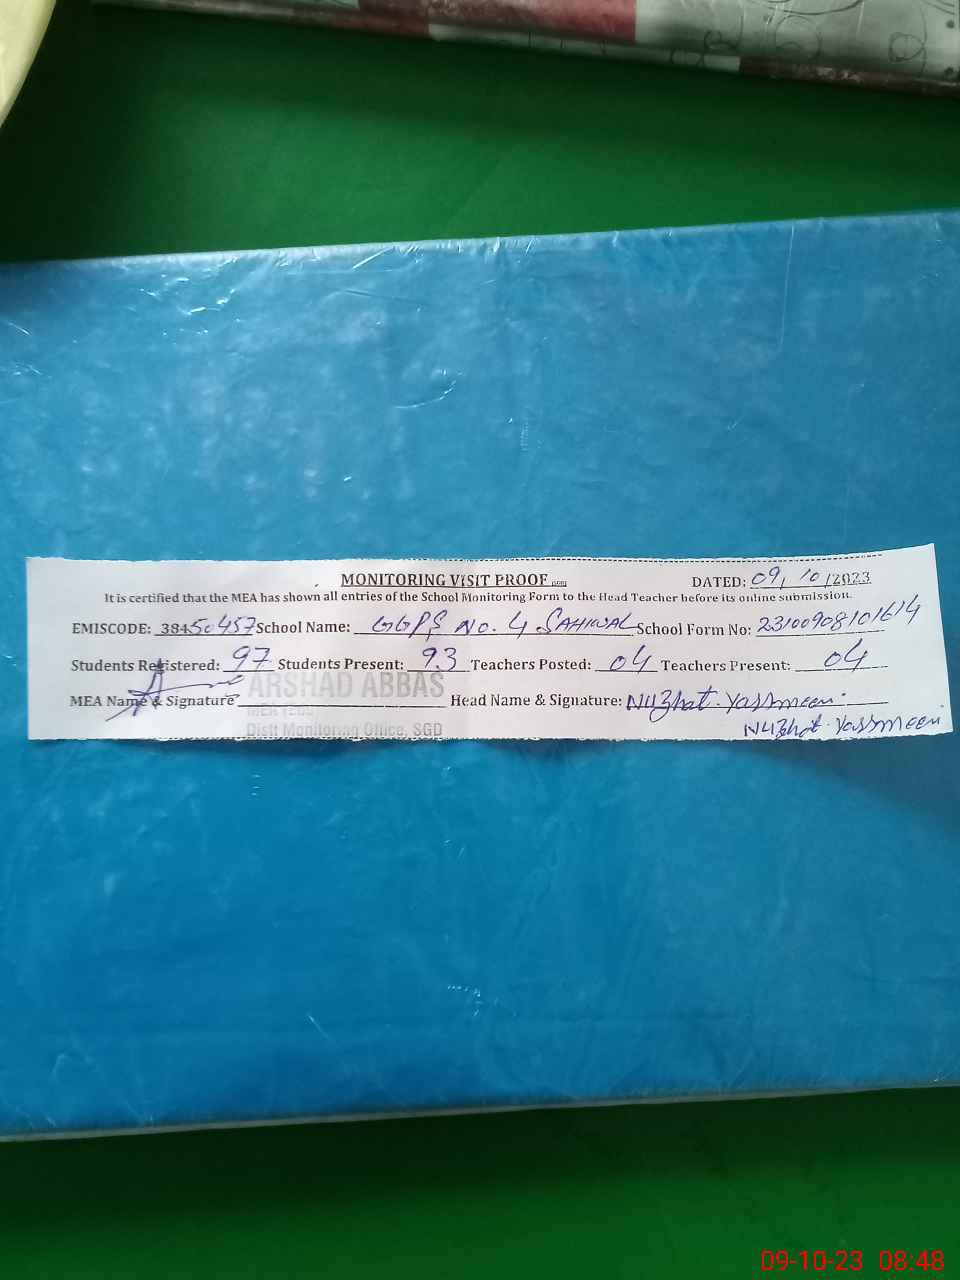 MONITORING VISIT PROOF
DATED: 09, 10 /2023
It is certified that the MEA has shown all entries of the School Monitoring Form to the Head Teacher before its online submission.
EMISCODE: 38450457 School Name: GGPS No. 4 SAHIWAL School Form No: 23100908101614
Students Registered: 97 Students Present: 93 Teachers Posted: 04 Teachers Present: 04
MEA Name & Signature ARSHAD ABBAS Head Name & Signature: Nuzhat. Yassmeen.
Distt Monitoring Office, SGD Nuzhat. Yassmeen.
09-10-23 08:48